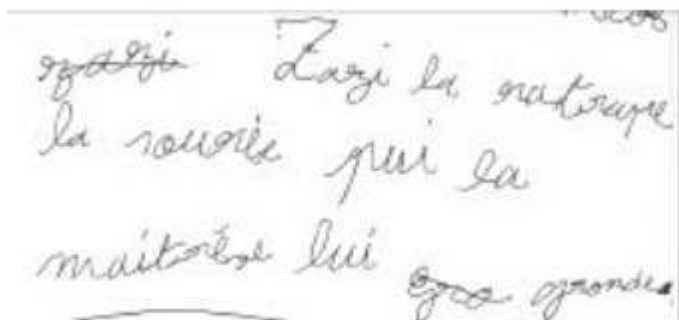 Zazi la ratrape
la sourie pui la
maitrése lui gronde